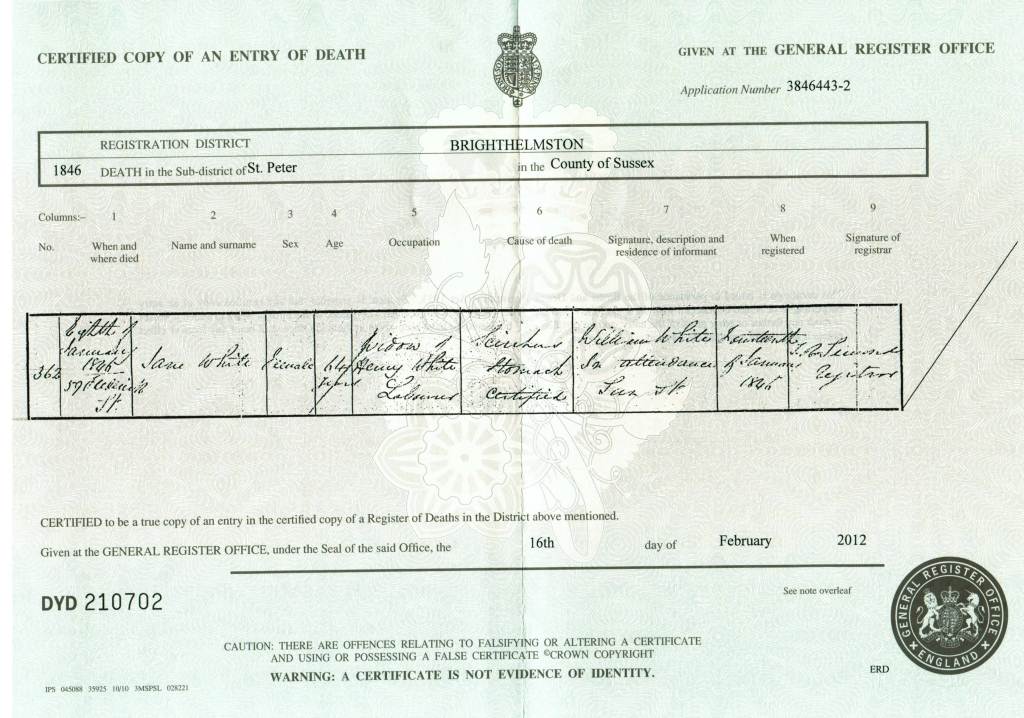 CERTIFIED COPY OF AN ENTRY OF DEATH
GIVEN AT THE GENERAL REGISTER OFFICE
Application Number 3846443-2
REGISTRATION DISTRICT BRIGHTHELMSTON
1846 DEATH in the Sub-district of St. Peter in the County of Sussex
Columns:- 1 2 3 4 5 6 7 8 9
No. When and where died Name and surname Sex Age Occupation Cause of death Signature, description and residence of informant When registered Signature of registrar
Eighth of Widow of William White
362 January Jane White Female 64 Henry White Stomach In attendance of January
1846 years Labourer Certified St. 1846 Registrar
59
St.
CERTIFIED to be a true copy of an entry in the certified copy of a Register of Deaths in the District above mentioned.
Given at the GENERAL REGISTER OFFICE, under the Seal of the said Office, the 16th day of February 2012
See note overleaf
DYD 210702
CAUTION: THERE ARE OFFENCES RELATING TO FALSIFYING OR ALTERING A CERTIFICATE
AND USING OR POSSESSING A FALSE CERTIFICATE ©CROWN COPYRIGHT
WARNING: A CERTIFICATE IS NOT EVIDENCE OF IDENTITY.
IPS 045088 35925 10/10 3MSPSL 028221
ERD
GENERAL REGISTER OFFICE
ENGLAND